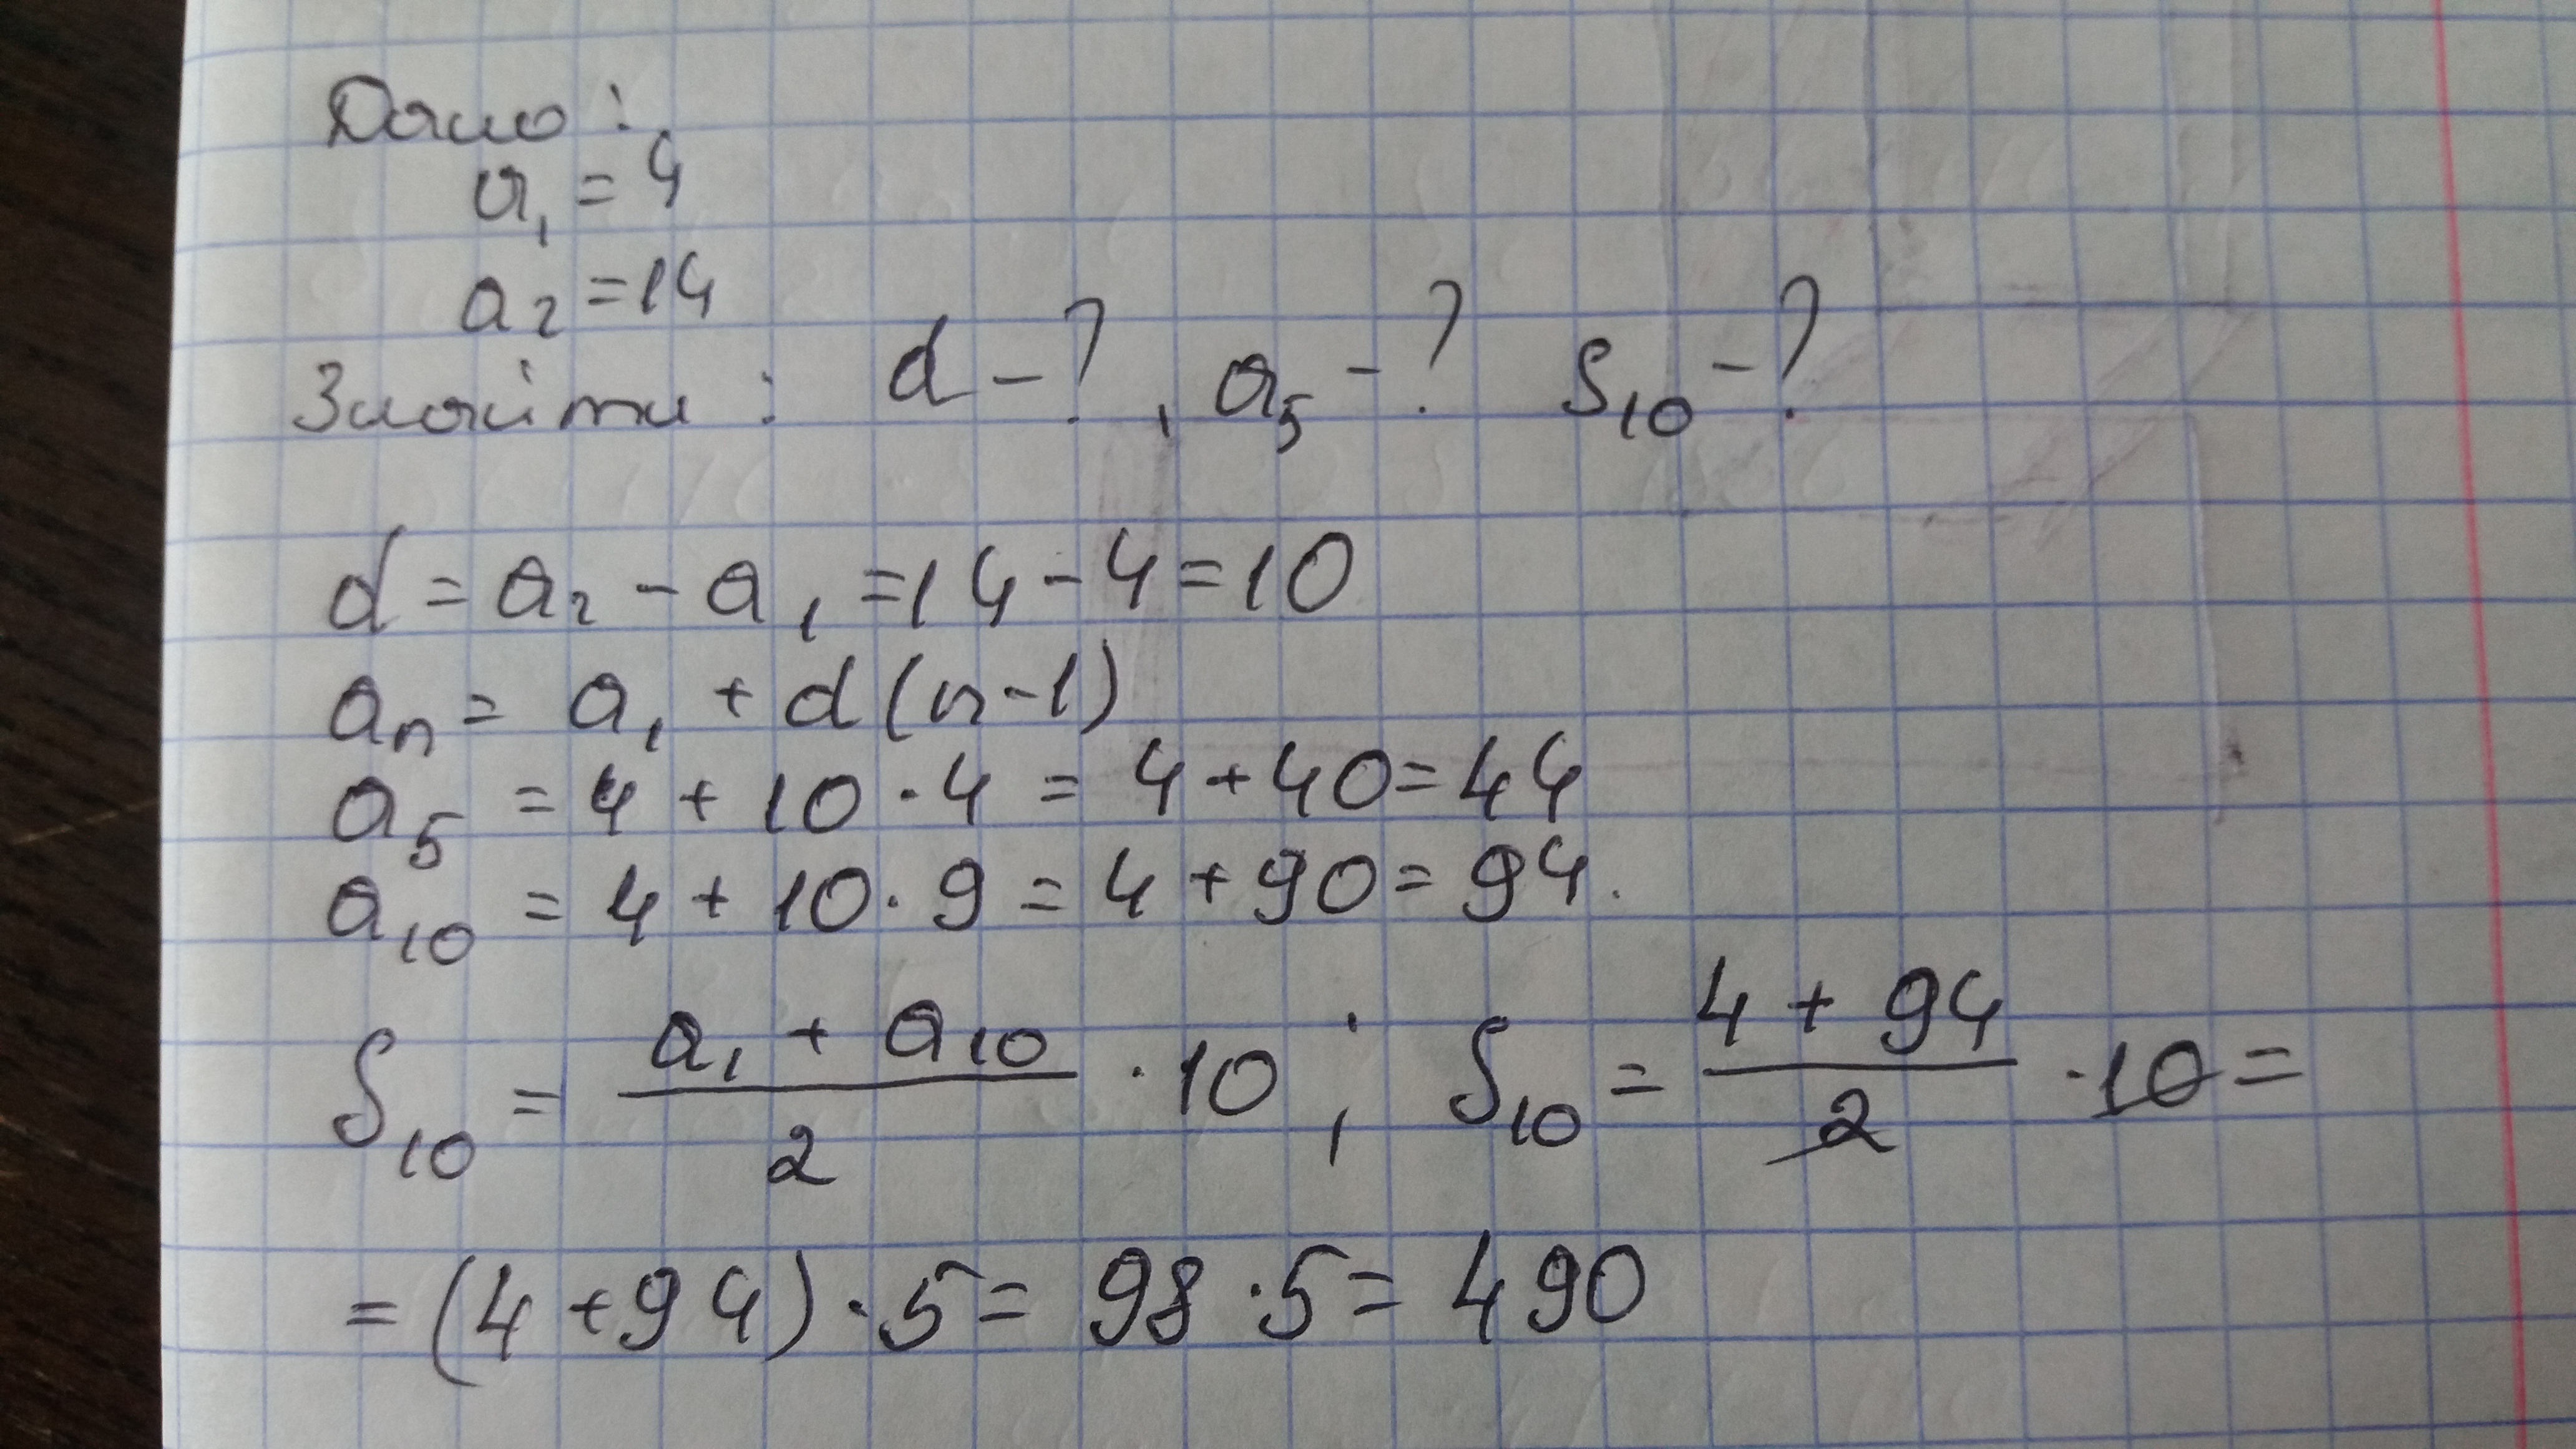 Дано:
a₁ = 4
a₂ = 14
Знайти: d - ?, a₅ - ? S₁₀ - ?
d = a₂ - a₁ = 14 - 4 = 10
aₙ = a₁ + d(n-1)
a₅ = 4 + 10 · 4 = 4 + 40 = 44
a₁₀ = 4 + 10 · 9 = 4 + 90 = 94.
S₁₀ = (a₁ + a₁₀)/2 · 10 ; S₁₀ = (4 + 94)/2 · 10 =
= (4 + 94) · 5 = 98 · 5 = 490